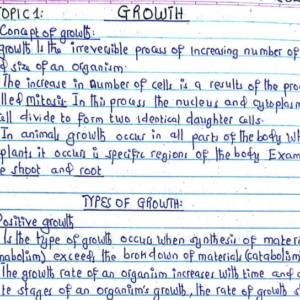 TOPIC 1: GROWTH
Concept of growth:
growth Is the irreversible process of Increasing number of
size of an organism.
The increase in number of cells is a results of the pro
lled mitosis In this process the nucleus and cytoplasm
all divide to form two identical daughter cells.
In animals growth occurs in all parts of the body Wh
plants it occurs is specific regions of the body Exam
e shoot and root
TYPES OF GROWTH:
Positive growth
Is the type of growth occurs when synthesis of mater
nabolism) exceeds the brokdown of materials (catabolism
The growth rate of an organism increases with time and
te stages of an organism's growth, the rate of growth s